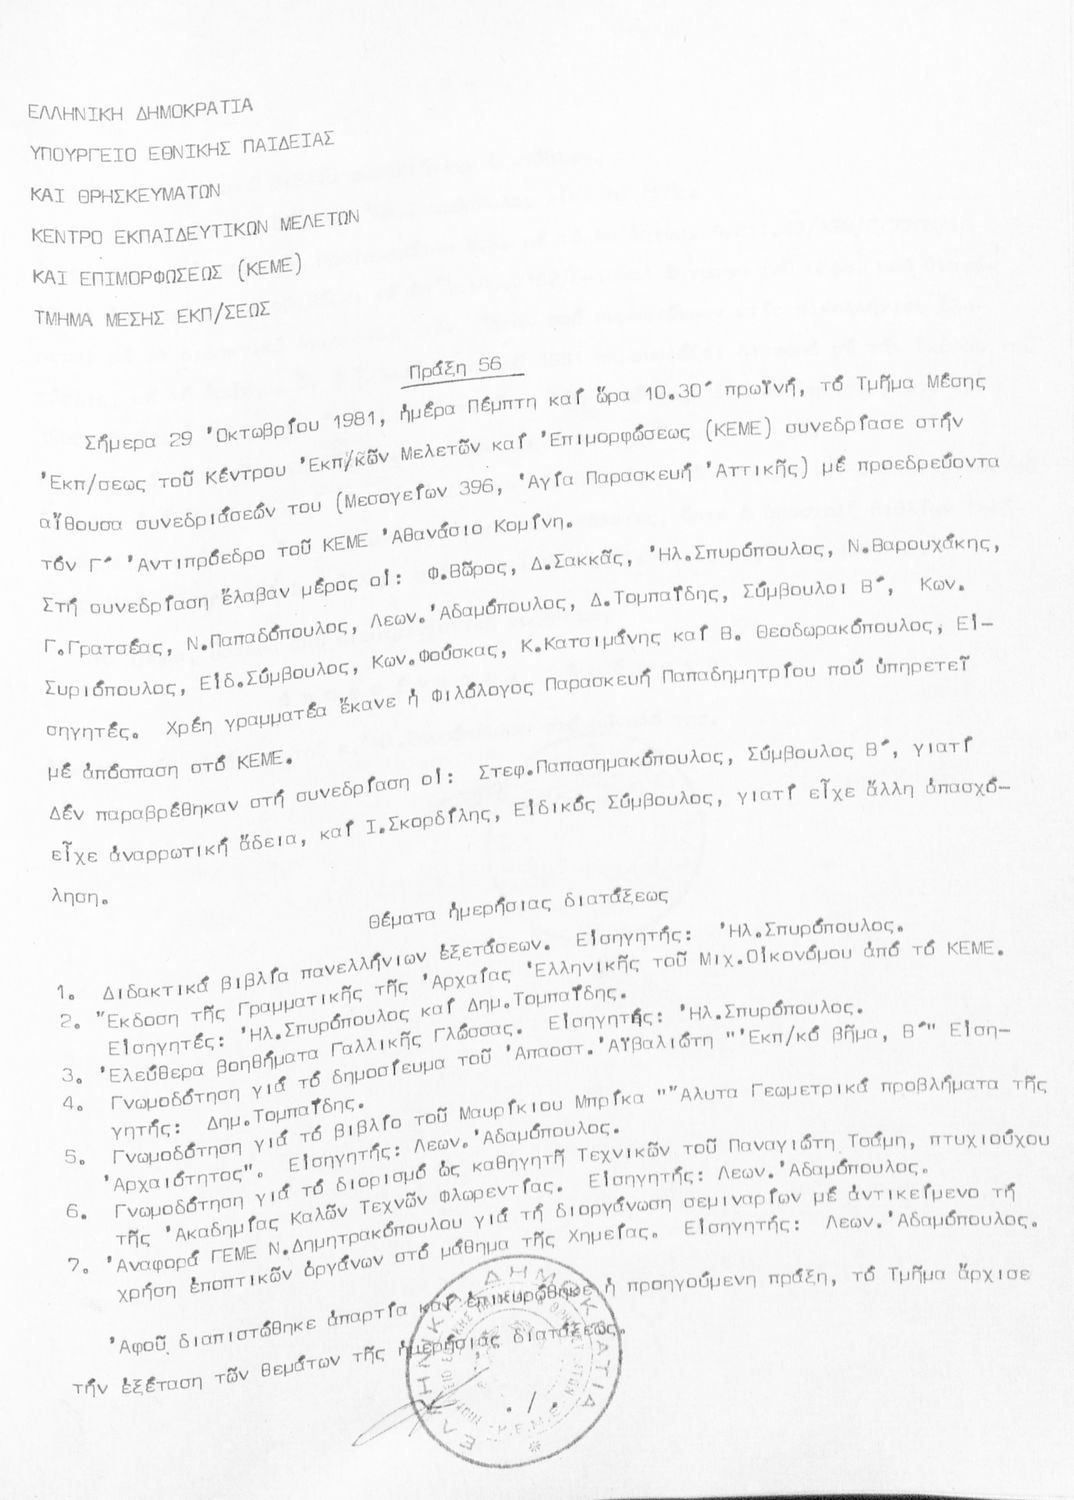 ΕΛΛΗΝΙΚΗ ΔΗΜΟΚΡΑΤΙΑ
ΥΠΟΥΡΓΕΙΟ ΕΘΝΙΚΗΣ ΠΑΙΔΕΙΑΣ
ΚΑΙ ΘΡΗΣΚΕΥΜΑΤΩΝ
ΚΕΝΤΡΟ ΕΚΠΑΙΔΕΥΤΙΚΩΝ ΜΕΛΕΤΩΝ
ΚΑΙ ΕΠΙΜΟΡΦΩΣΕΩΣ (ΚΕΜΕ)
ΤΜΗΜΑ ΜΕΣΗΣ ΕΚΠ/ΣΕΩΣ
Πράξη 56
Σήμερα 29 Ὀκτωβρίου 1981, ἡμέρα Πέμπτη καί ὥρα 10.30΄ πρωϊνή, τό Τμῆμα Μέσης
Ἐκπ/σεως τοῦ Κέντρου Ἐκπ/κῶν Μελετῶν καί Ἐπιμορφώσεως (ΚΕΜΕ) συνεδρίασε στήν
αἴθουσα συνεδριάσεών του (Μεσογείων 396, Ἁγία Παρασκευή Ἀττικῆς) μέ προεδρεύοντα
τόν Γ΄ Ἀντιπρόεδρο τοῦ ΚΕΜΕ Ἀθανάσιο Κομίνη.
Στή συνεδρίαση ἔλαβαν μέρος οἱ: Φ.Βῶρος, Δ.Σακκᾶς, Ἠλ.Σπυρόπουλος, Ν.Βαρουχάκης,
Γ.Γρατσέας, Ν.Παπαδόπουλος, Λεων.Ἀδαμόπουλος, Δ.Τομπαΐδης, Σύμβουλοι Β΄, Κων.
Συριόπουλος, Εἰδ.Σύμβουλος, Κων.Φούσκας, Κ.Κατσιμάνης καί Β. Θεοδωρακόπουλος, Εἰ-
σηγητές. Χρέη γραμματέα ἔκανε ἡ Φιλόλογος Παρασκευή Παπαδημητρίου πού ὑπηρετεῖ
μέ ἀπόσπαση στό ΚΕΜΕ.
Δέν παραβρέθηκαν στή συνεδρίαση οἱ: Στεφ.Παπασημακόπουλος, Σύμβουλος Β΄, γιατί
εἶχε ἀναρρωτική ἄδεια, καί Ι.Σκορδίλης, Εἰδικός Σύμβουλος, γιατί εἶχε ἄλλη ἀπασχό-
ληση.
Θέματα ἡμερήσιας διατάξεως
1. Διδακτικά βιβλία πανελλήνιων ἐξετάσεων. Εἰσηγητής: Ἠλ.Σπυρόπουλος.
2. Ἔκδοση τῆς Γραμματικῆς τῆς Ἀρχαίας Ἑλληνικῆς τοῦ Μιχ.Οἰκονόμου ἀπό τό ΚΕΜΕ.
Εἰσηγητές: Ἠλ.Σπυρόπουλος καί Δημ.Τομπαΐδης.
3. Ἐλεύθερα βοηθήματα Γαλλικῆς Γλώσσας. Εἰσηγητής: Ἠλ.Σπυρόπουλος.
4. Γνωμοδότηση γιά τό δημοσίευμα τοῦ Ἀπαοστ.Ἀϊβαλιώτη "Ἐκπ/κό βῆμα, Β΄" Εἰση-
γητής: Δημ.Τομπαΐδης.
5. Γνωμοδότηση γιά τό βιβλίο τοῦ Μαυρίκιου Μπρίκα "Ἄλυτα Γεωμετρικά προβλήματα τῆς
Ἀρχαιότητος". Εἰσηγητής: Λεων.Ἀδαμόπουλος.
6. Γνωμοδότηση γιά τό διορισμό ὡς καθηγητῆ Τεχνικῶν τοῦ Παναγιώτη Τσάμη, πτυχιούχου
τῆς Ἀκαδημίας Καλῶν Τεχνῶν Φλωρεντίας. Εἰσηγητής: Λεων.Ἀδαμόπουλος.
7. Ἀναφορά ΓΕΜΕ Ν.Δημητρακόπουλου γιά τή διοργάνωση σεμιναρίων μέ ἀντικείμενο τή
χρήση ἐποπτικῶν ὀργάνων στό μάθημα τῆς Χημείας. Εἰσηγητής: Λεων.Ἀδαμόπουλος.
Ἀφοῦ διαπιστώθηκε ἀπαρτία καί ἐπικυρώθηκε ἡ προηγούμενη πράξη, τό Τμῆμα ἄρχισε
τήν ἐξέταση τῶν θεμάτων τῆς ἡμερήσιας διατάξεως.
./.
ΕΛΛΗΝΙΚΗ ΔΗΜΟΚΡΑΤΙΑ
Κ.Ε.Μ.Ε.